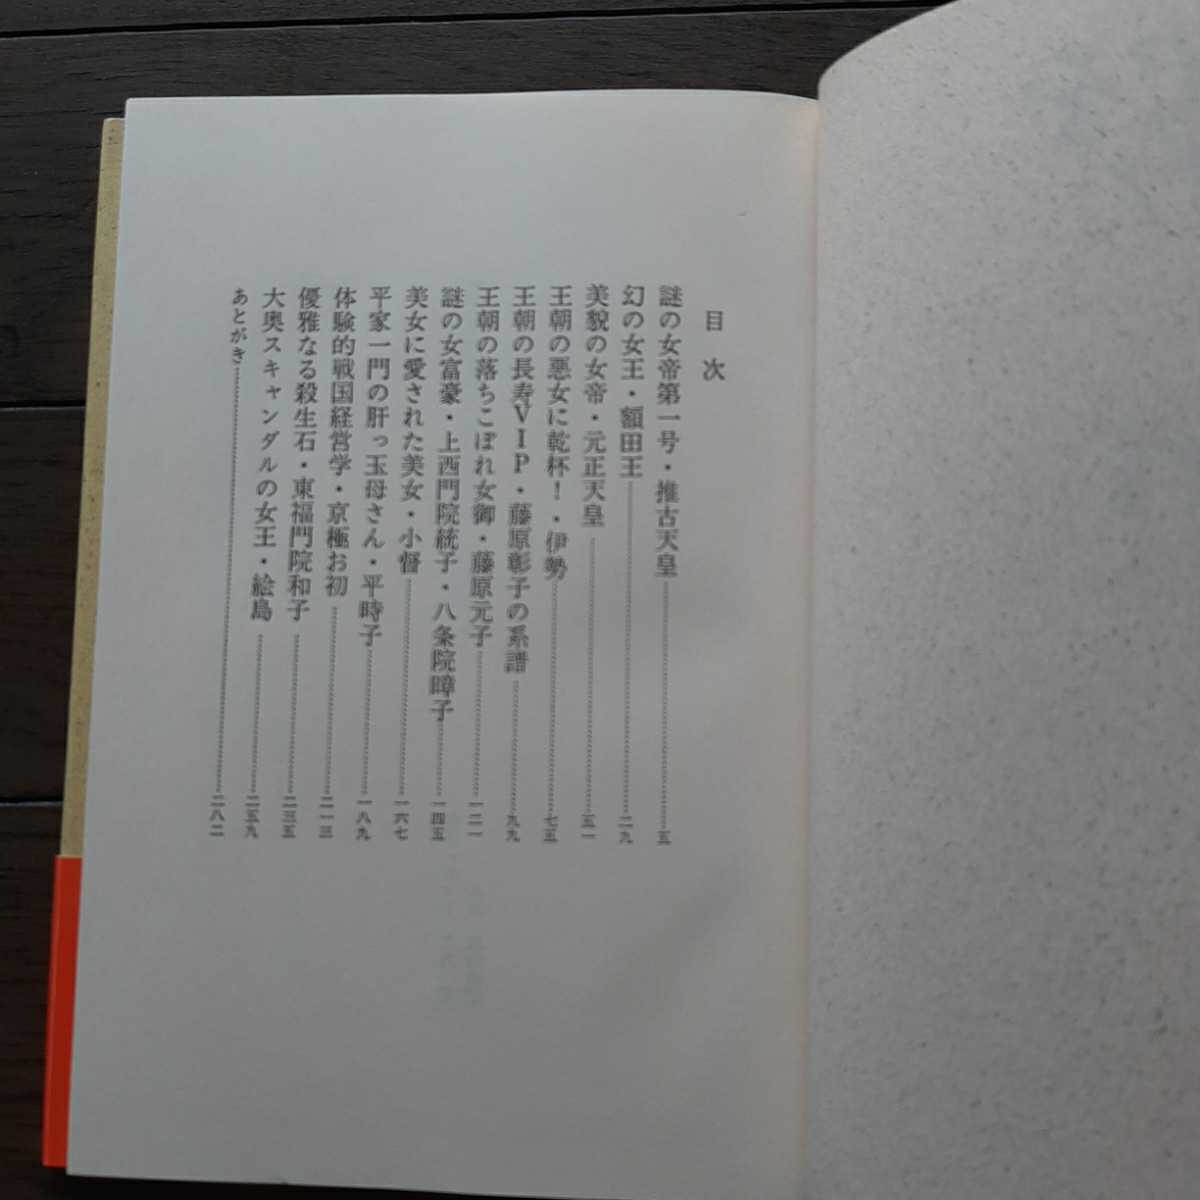 目次
謎の女帝第一号・推古天皇……五
幻の女王・額田王……二九
美貌の女帝・元正天皇……五一
王朝の悪女に乾杯!・伊勢……七五
王朝の長寿VIP・藤原彰子の系譜……九九
王朝の落ちこぼれ女御・藤原元子……一二一
謎の女富豪・上西門院統子・八条院暲子……一四五
美女に愛された美女・小督……一六七
平家一門の肝っ玉母さん・平時子……一八九
体験的戦国経営学・京極お初……二一三
優雅なる殺生石・東福門院和子……二三五
大奥スキャンダルの女王・絵島……二五九
あとがき……二八二